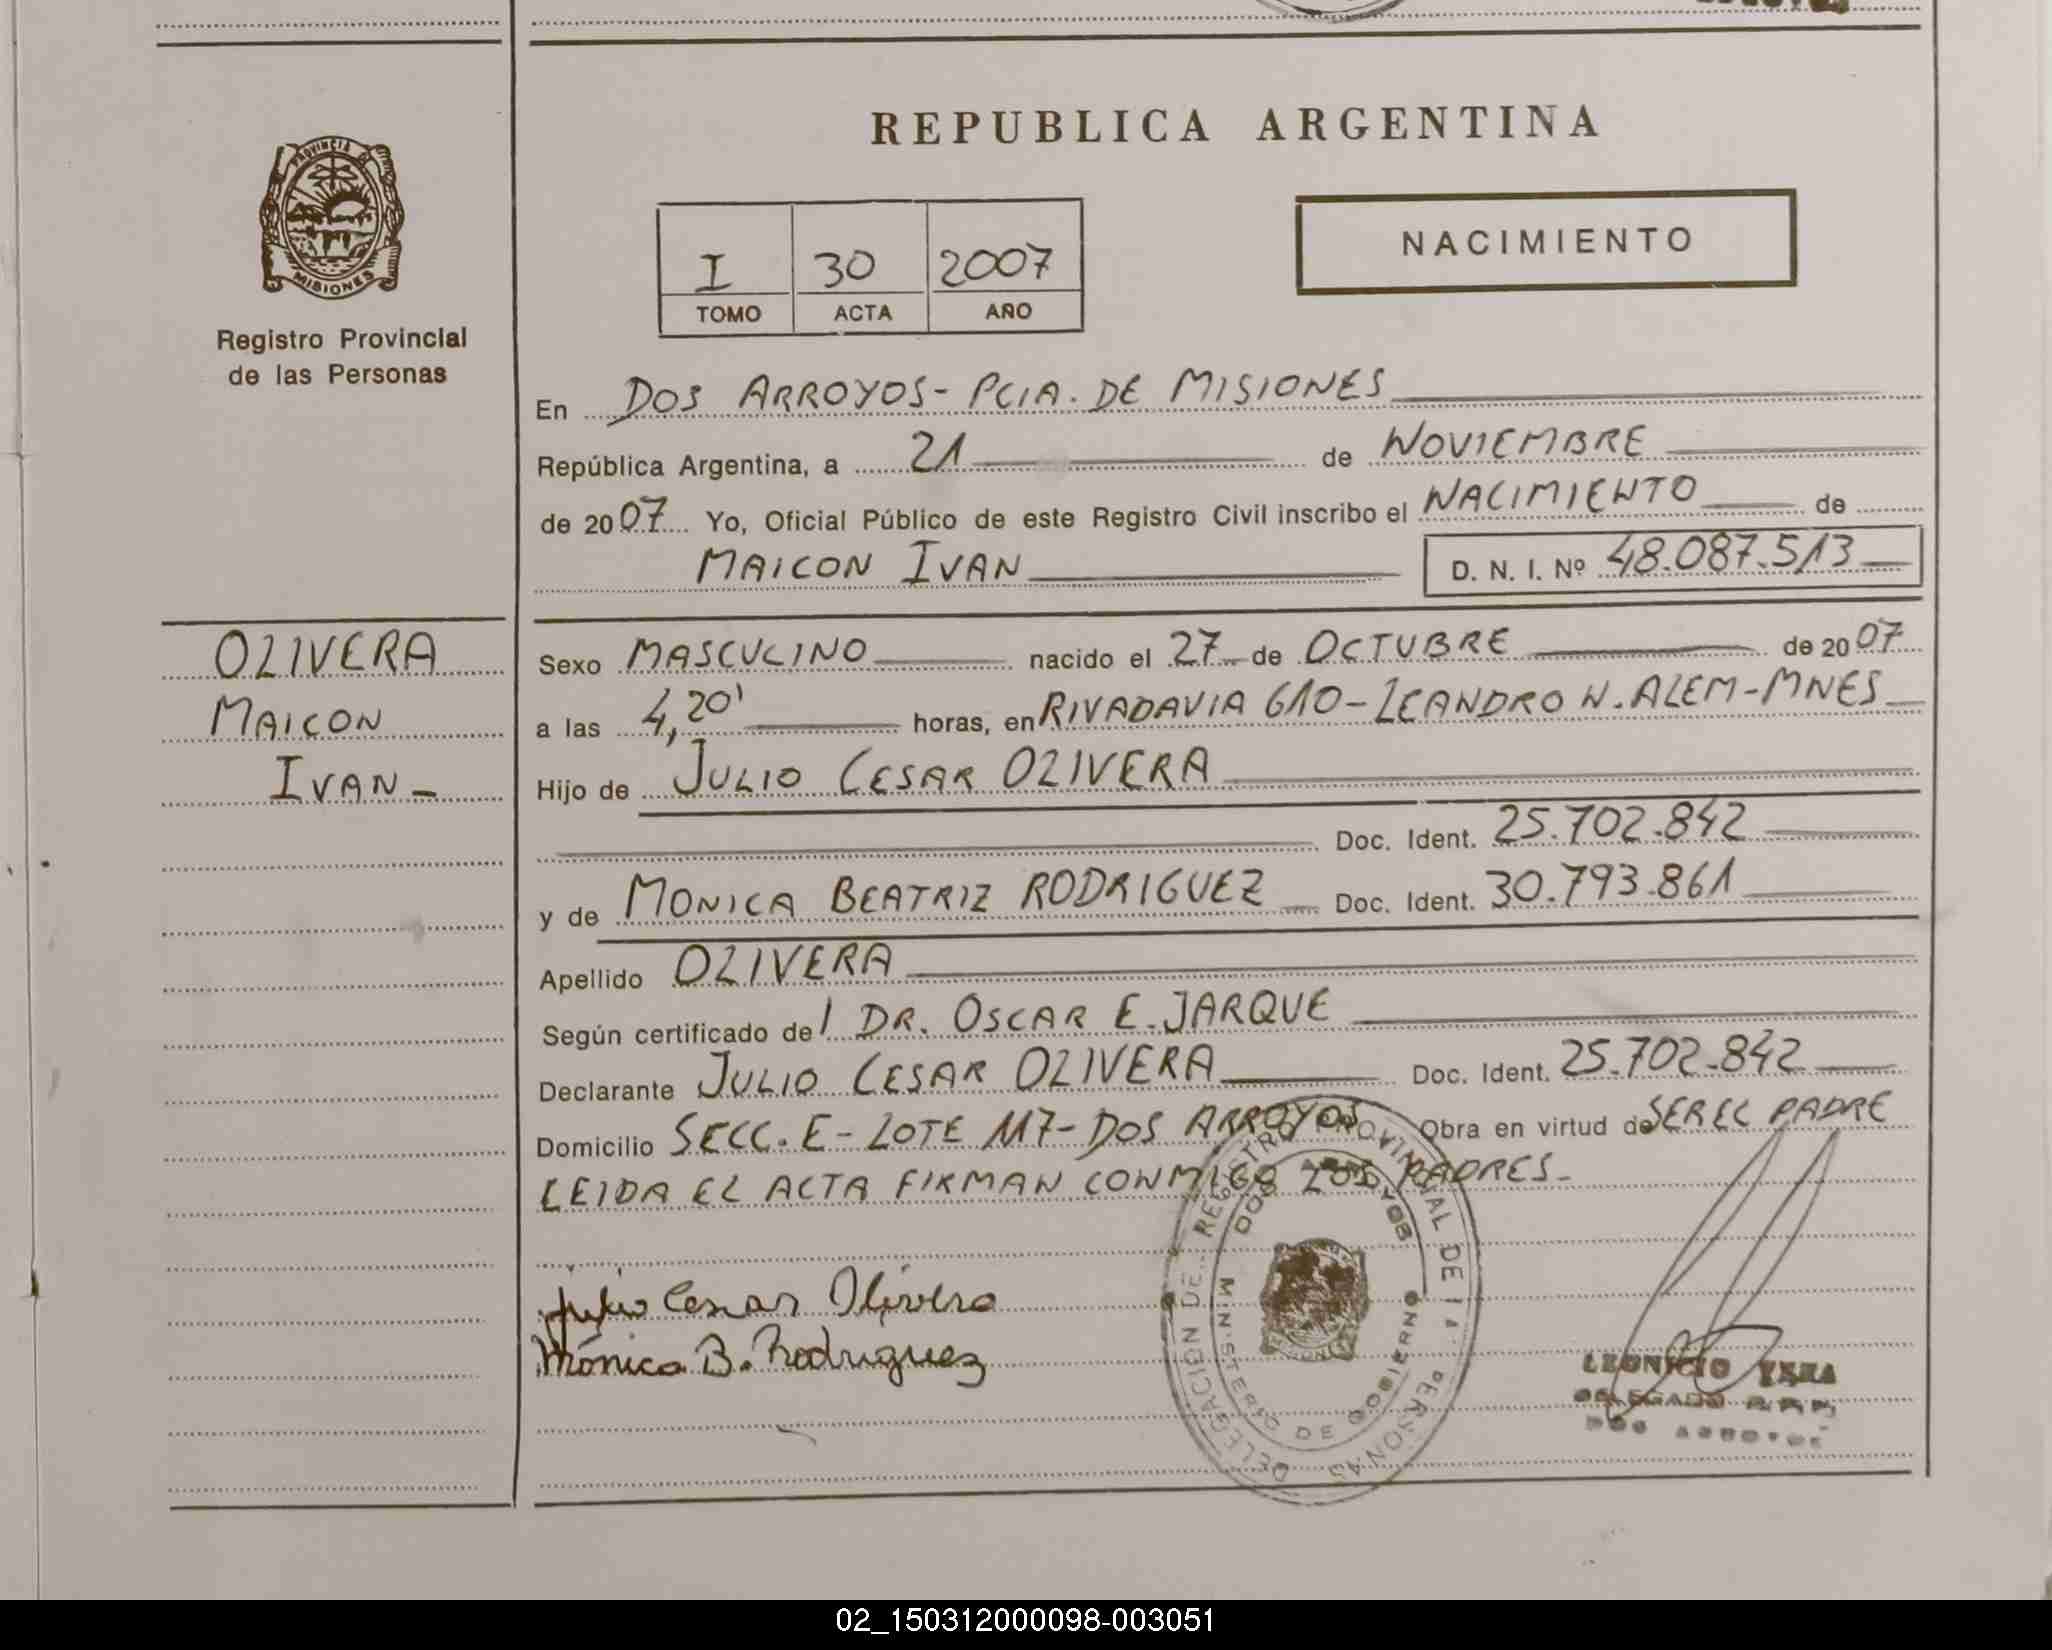 REPUBLICA ARGENTINA
PROVINCIA DE
MISIONES
Registro Provincial
de las Personas
NACIMIENTO
I 30 2007
TOMO ACTA AÑO
En DOS ARROYOS - PCIA. DE MISIONES
República Argentina, a 21 de NOVIEMBRE
de 2007 Yo, Oficial Público de este Registro Civil inscribo el NACIMIENTO de
MAICON IVAN D. N. I. Nº 48.087.513
OLIVERA
MAICON
IVAN
Sexo MASCULINO nacido el 27 de OCTUBRE de 2007
a las 4,20' horas, en RIVADAVIA 610 - LEANDRO N. ALEM - MNES
Hijo de JULIO CESAR OLIVERA
Doc. Ident. 25.702.842
y de MONICA BEATRIZ RODRIGUEZ Doc. Ident. 30.793.861
Apellido OLIVERA
Según certificado del DR. OSCAR E. JARQUE
Declarante JULIO CESAR OLIVERA Doc. Ident. 25.702.842
Domicilio SECC. E - LOTE 117 - DOS ARROYOS Obra en virtud de SER EL PADRE
LEIDA EL ACTA FIRMAN CONMIGO LOS PADRES -
Julio Cesar Olivera
Mónica B. Rodriguez
DELEGACION DE REGISTRO PROVINCIAL DE LAS PERSONAS
DOS ARROYOS
MINISTERIO DE GOBIERNO
DELEGADO R.P.P.
DOS ARROYOS
02_150312000098-003051